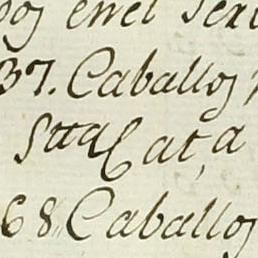 dos en el
37. Caballos
Stta Cat,a
68 Caballos